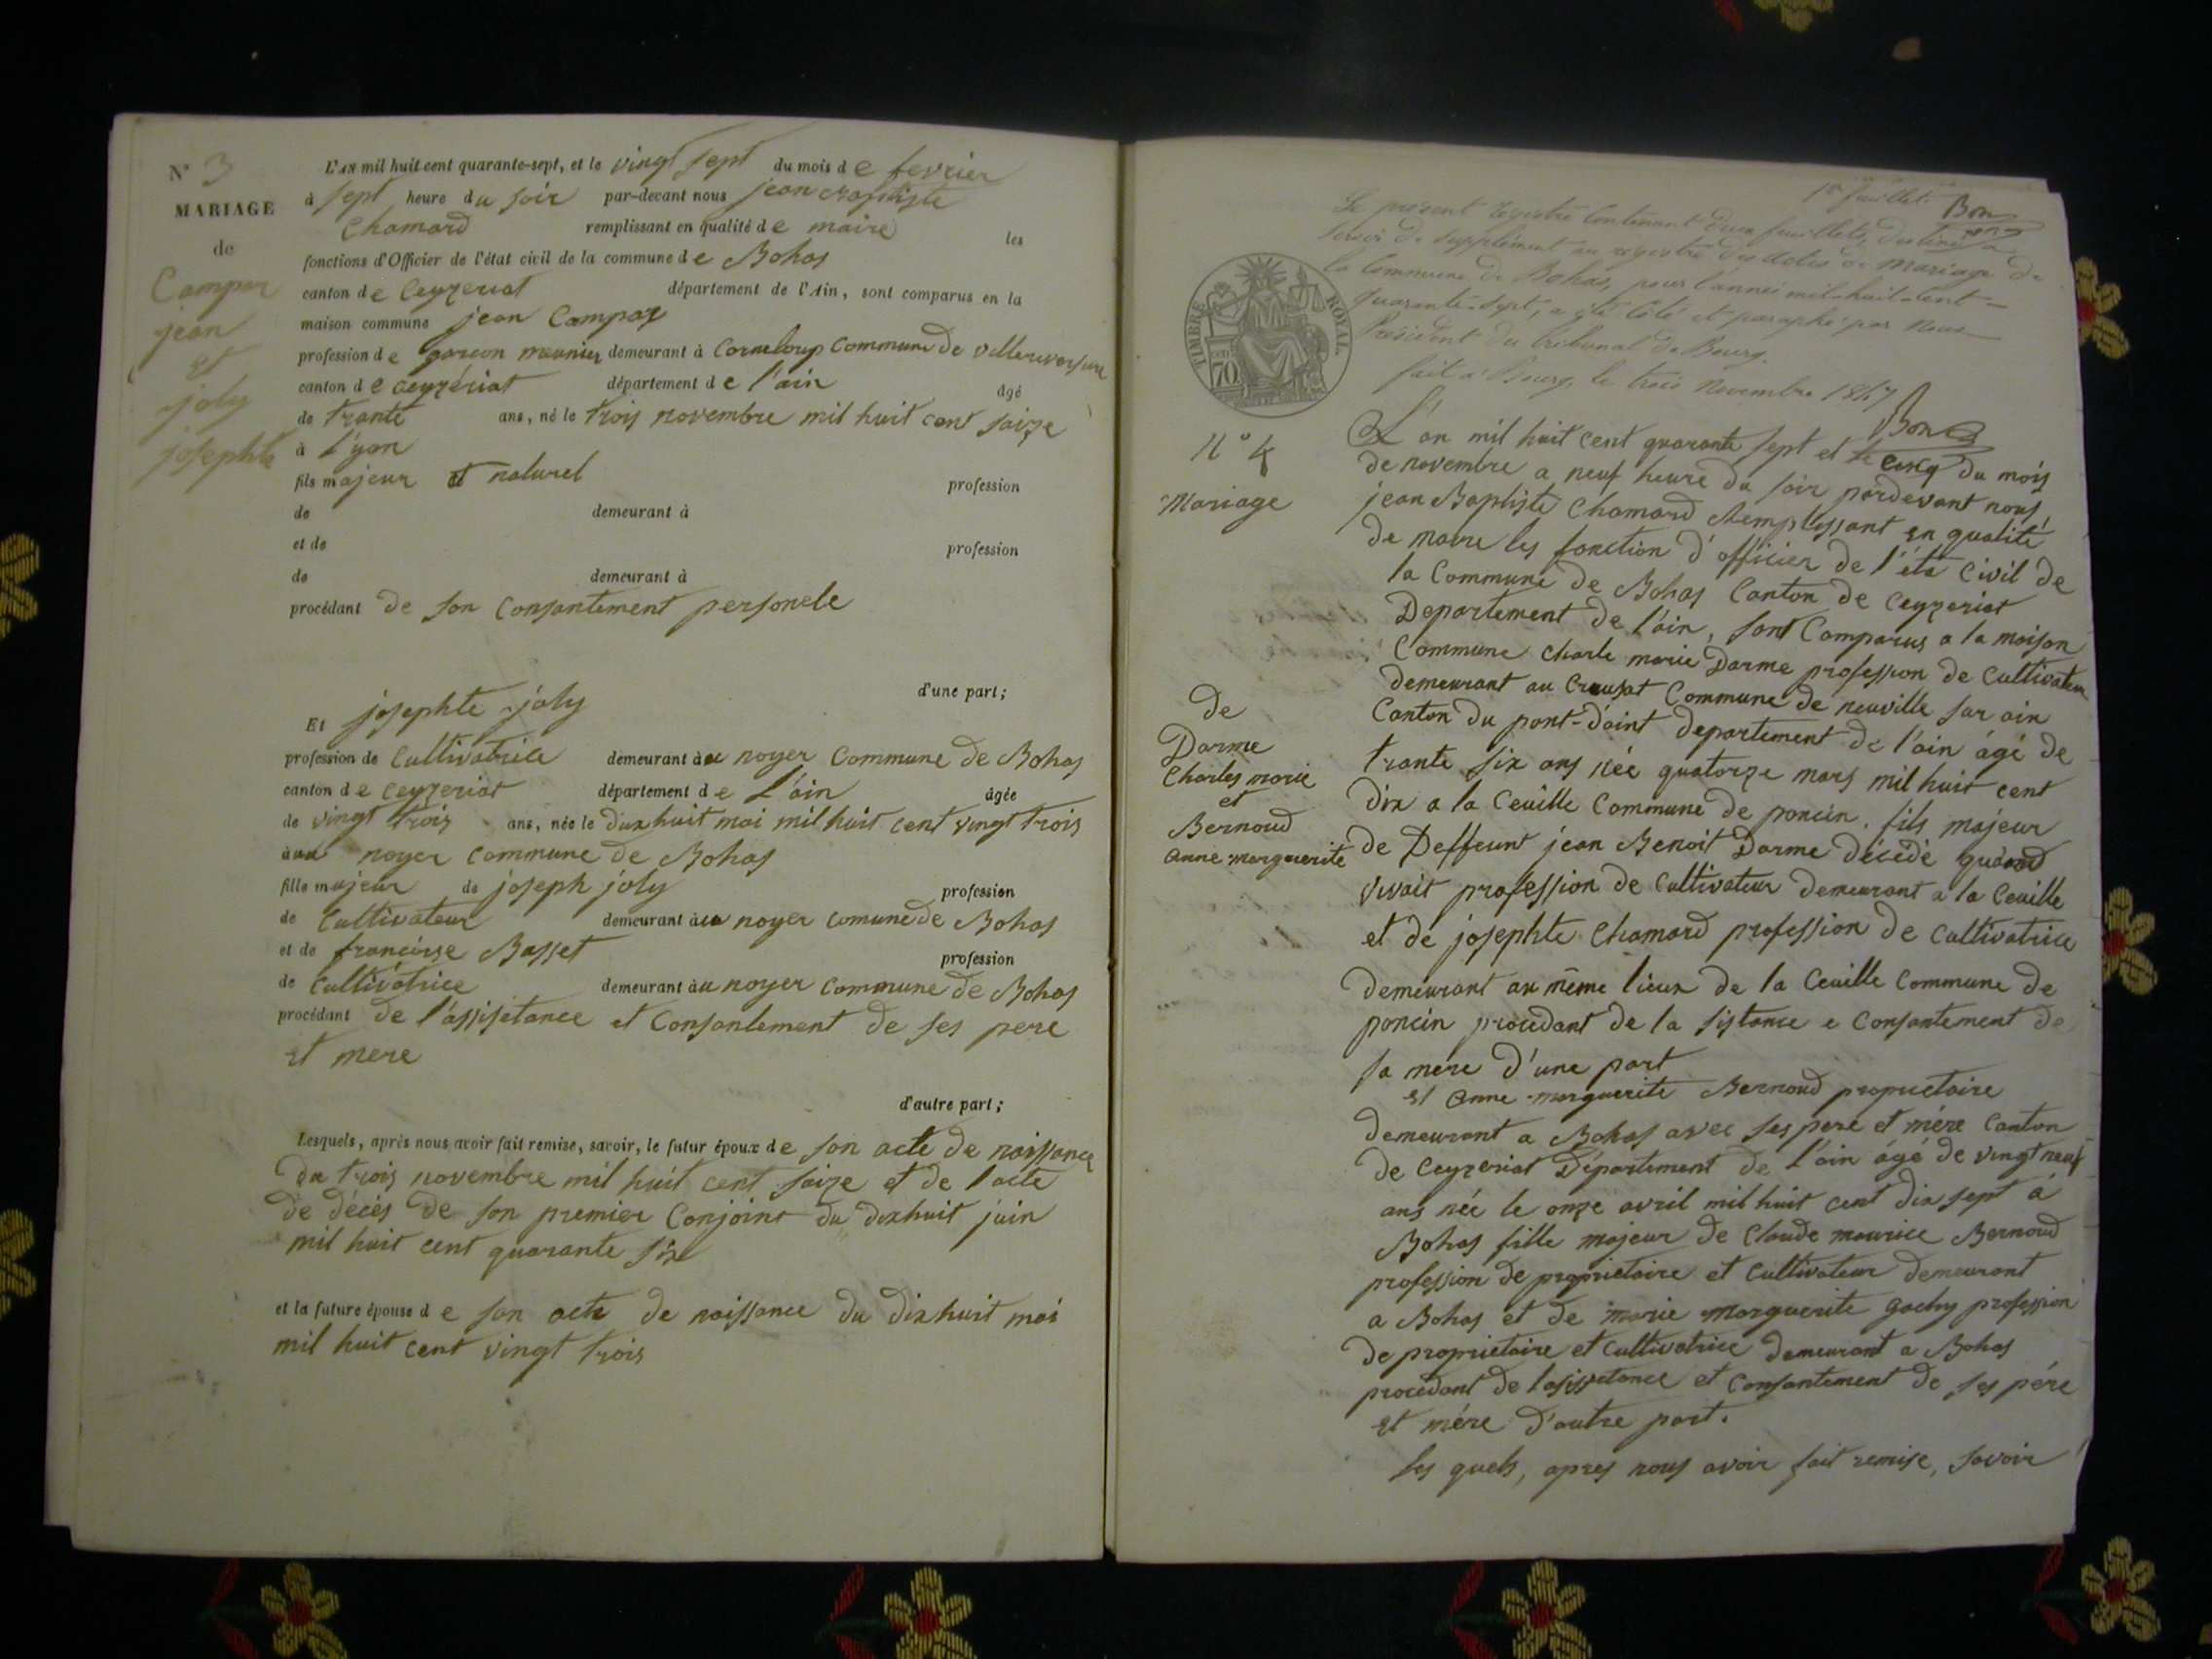 N° 3
MARIAGE
de
Campar
jean
et
joly
josephte
L'AN mil huit cent quarante-sept, et le vingt sept du mois de fevrier
à sept heure du soir par-devant nous jean Baptiste
Chamard remplissant en qualité de maire les
fonctions d'Officier de l'état civil de la commune de Bohas
canton de Ceyzeriat département de l'Ain, sont comparus en la
maison commune jean Campar
profession de garcon meunier demeurant à Corneloup Commune de Villereversure
canton de ceyzériat département de l'ain âgé
de trante ans, né le trois novembre mil huit cent saize
à l'yon
fils majeur et naturel profession
de demeurant à
et de profession
de demeurant à
procédant de son Consantement personele
d'une part;
Et josephte joly
profession de Cultivatrice demeurant à au noyer Commune de Bohas
canton de ceyzeriat département de l'ain âgée
de vingt trois ans, née le dixhuit mai mil huit cent vingt trois
à au noyer Commune de Bohas
fille majeur de joseph joly profession
de Cultivateur demeurant à au noyer comune de Bohas
et de francoise Basset profession
de Cultivatrice demeurant à au noyer Commune de Bohas
procédant de l'assisetance et Consantement de ses pere
et mere
d'autre part;
Lesquels, après nous avoir fait remise, savoir, le futur époux de son acte de naissance
du trois novembre mil huit cent saize et de l'acte
de décés de son premier Conjoint du dixhuit juin
mil huit cent quarante six
et la future épouse de son acte de naissance du dixhuit mai
mil huit cent vingt trois
1er feuillet. Bon
Le présent registre Contenant deux feuillets, destiné à
servir de supplément au registre des actes de Mariage de
la Commune de Bohas, pour l'année mil-huit-cent-
quarante-sept, a été côté et paraphé par Nous
Président du tribunal de Bourg.
fait à Bourg, le trois Novembre 1847
Bon
TIMBRE ROYAL
70
N° 4
Mariage
de
Darme
Charles marie
et
Bernoud
anne marguerite
L'an mil huit cent quarante sept et le cinq du mois
de novembre a neuf heure du soir pardevant nous,
jean Baptiste Chamard Remplissant en qualité
de maire les fonction d'officier de l'éta Civil de
la Commune de Bohas Canton de Ceyzeriat
Departement de l'ain, sont Comparus a la maison
Commune Charle marie Darme profession de Cultivateur
demeurant au Creusat Commune de neuville sur ain
Canton du pont-d'aint departement de l'ain àgé de
trante six ans née quatorze mars mil huit cent
dix a la Ceuille Commune de poncin. fils majeur
de Deffeunt jean Benoit Darme décédé quand
vivait profession de Cultivateur demeurant a la Ceuille
et de josephte Chamard profession de Cultivatrice
demeurant au même lieux de la Ceuille Commune de
poncin procedant de la sistance e Consantement de
sa mere d'une part
et anne marguerite Bernoud proprietaire
demeurant a Bohas avec ses pere et mére Canton
de Ceyzeriat Département de l'ain ágé de vingt neuf
ans née le onze avril mil huit cent dix sept à
Bohas fille majeur de Claude maurice Bernoud
profession de proprietaire et Cultivateur demeurant
a Bohas et de marie marguerite gachy profession
de proprietaire et Cultivatrice demeurant a Bohas
procedant de lasisetance et Consantement de ses pére
et mére d'autre part.
les quels, apres nous avoir fait remise, savoir